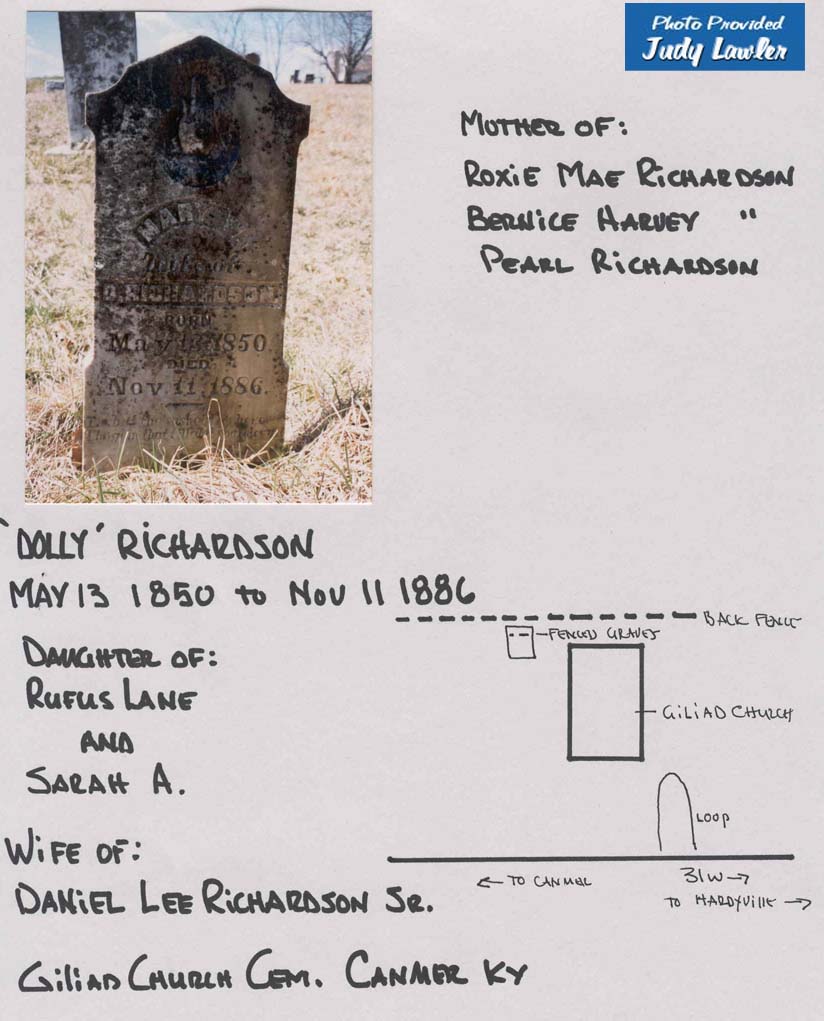 Photo Provided
Judy Lawler
MOTHER OF:
ROXIE MAE RICHARDSON
BERNICE HARVEY "
PEARL RICHARDSON
MARY
Wife of
D. RICHARDSON
BORN
May 13, 1850
DIED
Nov. 11, 1886.
"DOLLY" RICHARDSON
MAY 13 1850 to NOV 11 1886
DAUGHTER OF:
RUFUS LANE
AND
SARAH A.
WIFE OF:
DANIEL LEE RICHARDSON SR.
GILIAD CHURCH CEM. CANMER KY
BACK FENCE
FENCED GRAVES
GILIAD CHURCH
LOOP
← TO CANMER
31W →
TO HARDYVILLE →